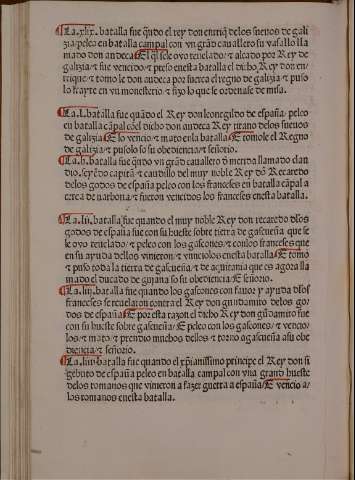 La .xlix. batalla fue qñdo el rey don enrriq̃ delos sueuos de gali
zia/ peleo en batalla campal con vn grãd cauallero su vasallo lla
mado don andeca/ E el q̃l se le ouo reuelado/ ⁊ alçado por Rey de
galizia/ ⁊ fue vencido/ ⁊ preso enesta batalla el dicho Rey don en/
rrique/ ⁊ tomo le don andeca por fuerça el regno de galizia/ ⁊ puso
lo frayre en vn monesterio/ ⁊ fizo lo que se ordenase de missa.
La .l. batalla fue quãdo el Rey don leonegildo de españa/ peleo
en batalla cãpal cõel dicho don andeca Rey tirano delos sueuos
de galizia/ E lo vencio ⁊ mato enla batalla/ E tomole el Regno
de galizia/ ⁊ pusolo so su obediencia/ ⁊ señorio.
La .li. batalla fue qñdo vn grãd cauallero õ merida llamado clau
dio. seyẽdo capitã ⁊ caudillo del muy noble Rey dõ Recaredo
delos godos de españa peleo con los franceses en batalla cãpal a
cerca de narbona/ ⁊ fueron vencidos los franceses enesta batalla.
La .lii. batalla fue quando el muy noble Rey don recaredo dlos
godos de españa fue con su hueste sobre tierra de gascueña que se
le ouo reuelado/ ⁊ peleo con los gascones/ ⁊ conlos franceses que
en su ayuda dellos vinieron ⁊ vinciolos enesta batalla/ E tomo
⁊ puso toda la tierra de gascueña/ ⁊ de aquitania que es agora lla
mado el ducado de guiana so su obediencia/ E señorio.
La .liii. batalla fue quando los gascones con fauor y ayuda dlos
franceses se reuelaron contra el Rey don gundamiro delos go/
dos de españa/ E por esta razon el dicho Rey don gũdamiro fue
con su hueste sobre gascueña/ E peleo con los gascones/ ⁊ vencio/
los/ ⁊ mato/ ⁊ prendio muchos dellos/ ⁊ torno a gascueña asu obe
diencia/ ⁊ señorio.
La .liiii. batalla fue quando el xp̃ianissimo principe el Rey don si
gebuto de españa peleo en batalla campal con vna grand hueste
delos romanos que vinieron a fazer guerra a españa/ E vencio a/
los romanos enesta batalla.